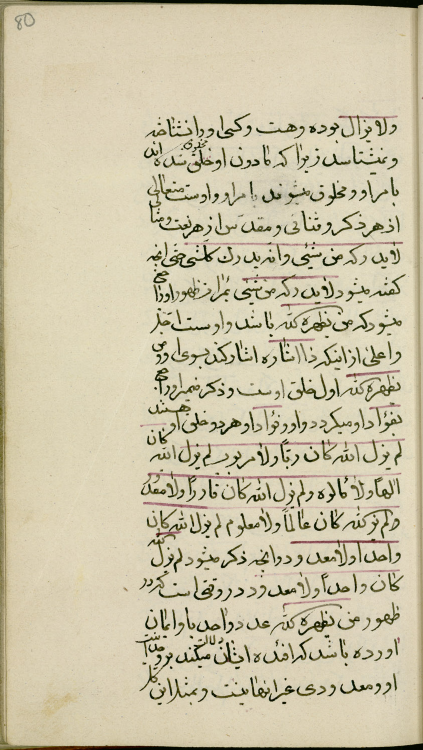 80
ولا یزال بوده وهست وکسی اورا نشناخته
ونمیشناسد زیرا که مادون او خلق شده اند
بامر او ومخلوق میشوند بامر او واوست متعالی
از هر ذکر وثنائی ومقدس از هر نعت ومثالی
لا یدرکه من شیئی وانه یدرک کلشیئی حتی انچه
گفته میشود لا یدرکه من شیئی ثمرا از ظهور اوراجع
میشود که من یظهره الله باشد واوست اجل
واعلی از اینکه ذا اشاره اشاره کند بسوی او ومن
یظهره الله اول خلق اوست وذکر ضمیر راجع
بفؤاد او میگردد واو وفؤاد او هر دو خلق او هستند
لم یزل الله کان ربا ولا مربوب لم یزل الله کان
الها ولا مالوه ولم یزل الله کان قادرا ولا مقدور
ولم یزل الله کان عالما ولا معلوم لم یزل الله کان
واحدا ولا معدود وانچه ذکر میشود لم یزل الله
کان واحدا ولا معدود در وقتی است که در
ظهور من یظهره الله عدد واحد باو ایمان
اورده باشد که افئده ایشان دلالت میکند بر وحدانیت
او ومعدودی غیر انها نیست وبمثل این